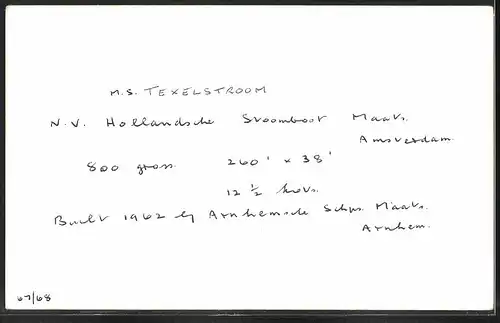 M.S. TEXELSTROOM
N.V. Hollandsche Stoomboot Maats.
Amsterdam.
800 gross. 260' x 38'
12 ½ knots.
Built 1962 by Arnhemsche Schps. Maats.
Arnhem.
67/68